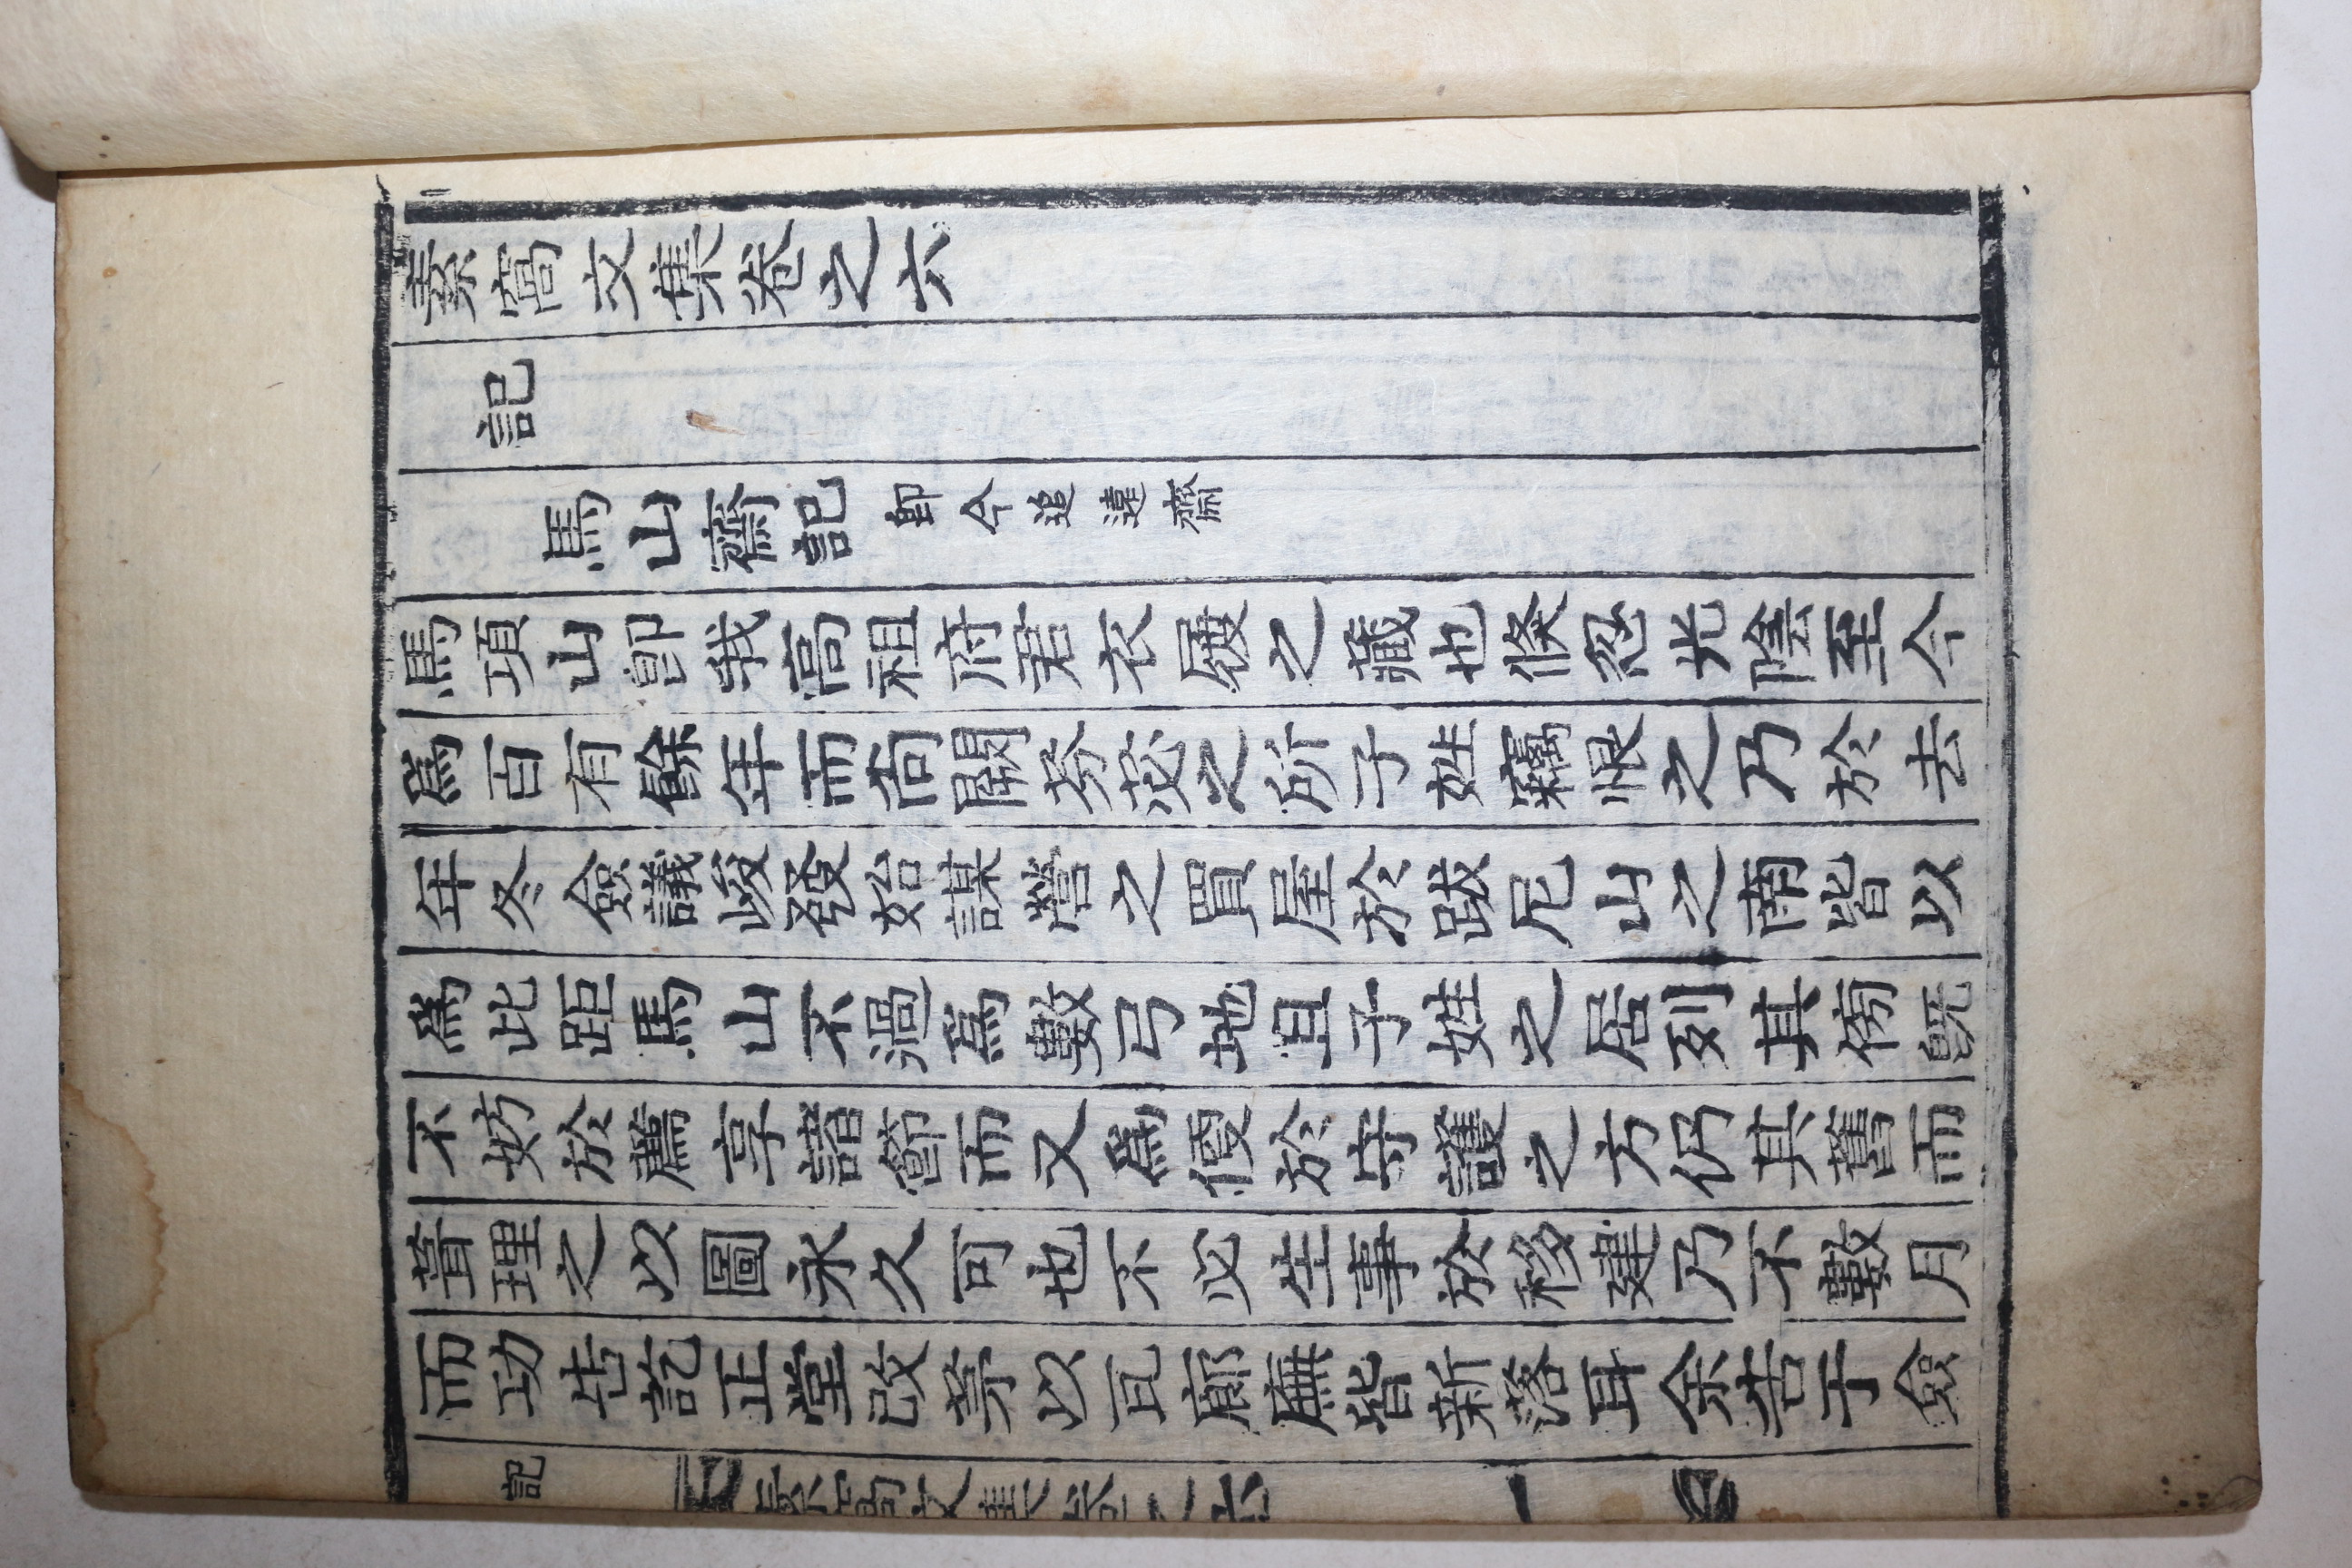 素窩文集卷之六
記
馬山齋記 卽今追遠齋
馬項山卽我高祖府君衣履之藏也倐忽光陰至今
爲百有餘年而尚闕芬苾之所子姓竊恨之乃於去
年冬僉議峻發始謀營之買屋於跋尼山之南皆以
爲此距馬山不過爲數弓地且子姓之居列其傍旣
不妨於薦享諸節而又爲便於守護之方仍其舊而
葺理之以圖永久可也不必生事於移建乃不數月
而功告訖正堂改茅以瓦廊廡皆新落耳余告于僉
記 素窩文集卷之六 一